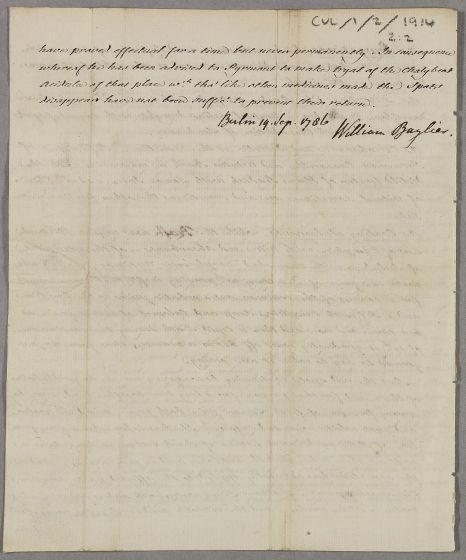 CUL/1/2/1914
2:2
have proved effectual for a time but never permanently. In consequence
whereof he has been advised to Pyrmont to make tryal of the Chalybeat
Acidula of that place wch. tho' like other medicines made the Spasms
disappear have not been suffict. to prevent their return.
Berlin 14. Sep. 1786
William Baylies.